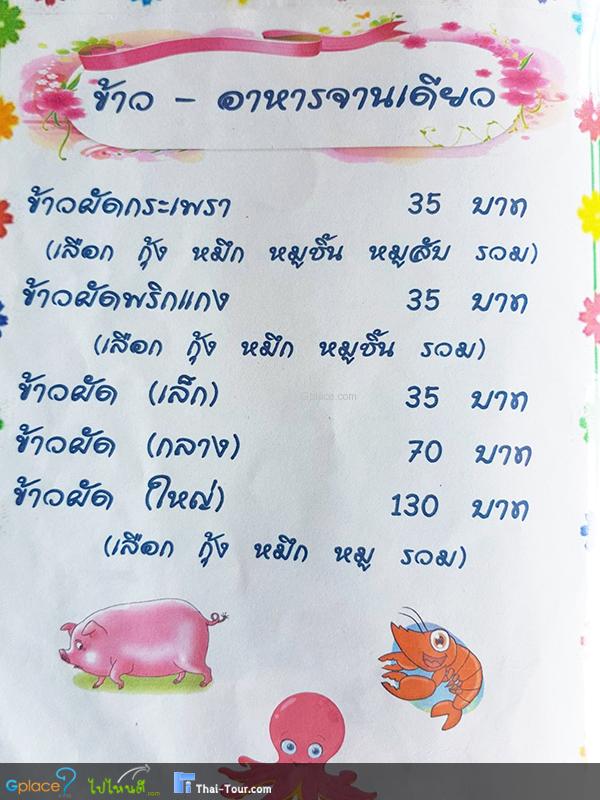 ข้าว - อาหารจานเดียว
ข้าวผัดกระเพรา 35 บาท
(เลือก กุ้ง หมึก หมูชิ้น หมูสับ รวม)
ข้าวผัดพริกแกง 35 บาท
(เลือก กุ้ง หมึก หมูชิ้น รวม)
ข้าวผัด (เล็ก) 35 บาท
Gplace.com
ข้าวผัด (กลาง) 70 บาท
ข้าวผัด (ใหญ่) 130 บาท
(เลือก กุ้ง หมึก หมู รวม)
Gplace ไปไหนดี.com Thai-Tour.com